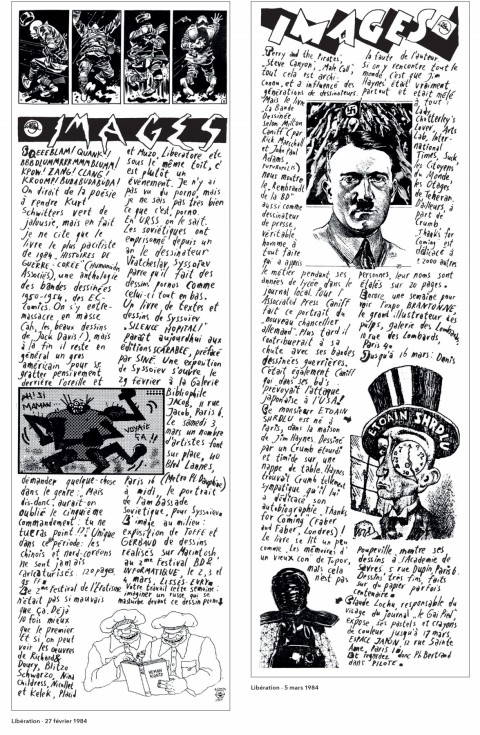 IMAGES
BREEEBLAM! QUANK!
BBBDLUMMRRRMMMBLUMM!
KPOW! ZANG! CLANG!
KROUMF! BUBABUDABUDA!
On dirait de la poésie
à rendre Kurt
Schwitters vert de
jalousie, mais en fait
Je ne cite que le
livre le plus pacifiste
de 1984. HISTOIRES DE
GUERRE-CORÉE (Humanoïdes
Associés), une anthologie
des bandes dessinées
1950-1954, des EC-
Comics. On s'y entre-
massacre en masse
(ah, les beaux dessins
de Jack Davis!), mais
à la fin il reste en
général un gros
américain pour se
gratter pensivement
derrière l'oreille et
AH! SI
MAMAN
VOYAIT
ÇA!!
demander quelque-chose
dans le genre: Mais
dis-donc, aurait-on
oublié le cinquième
commandement: tu ne
tueras point!?! Unique
dans ce période: les
chinois et nord-coréens
ne sont jamais
caricaturisés. 120 pages
Le 2ème Festival de l'Érotisme
n'était pas si mauvais
que ça. Déjà
10 fois mieux
que le premier
Et si, on peut
voir les œuvres
de Richard &
Doury, Blitzo
Schwarzo, Nina
Childress, Nicollet
et Kelek, Placid
et Muzo, Liberatore etc
sous le même toit, c'
est plutôt un
événement. Je n'y ai
pas vu du porno, mais
je ne sais pas très bien
ce que c'est, porno.
En URSS on le sait.
Les soviétiques ont
emprisonné depuis un
an le dessinateur
Viatcheslav Syssoïev
parce qu'il fait des
dessins pornos comme
celui-ci tout en bas.
Un livre de textes et
dessins de Syssoïev
"SILENCE HOPITAL!"
paraît aujourd'hui aux
éditions SCARABÉE, préfacé
par SINÉ. Une exposition
de Syssoïev s'ouvre le
29 février à la Galerie
Bibliophile
Jacob, 11 rue
Jacob, Paris 6.
Le samedi 3
mars un nombre
d'artistes font
sur place, 40
Blvd Lannes,
Paris 16 (Métro Pte Dauphine)
à midi, le portrait
de l'ambassade
Soviétique, pour Syssoïev
L'image au milieu:
exposition de TOFFE et
GERBAUD de dessins
réalisés sur Macintosh,
au 2ème Festival BD &
INFORMATIQUE, le 2, 3 et
4 mars, LISSES-EVRY.
Votre travail cette semaine:
imaginer un russe, qui se
masturbe devant ce dessin porno
Libération - 27 février 1984
IMAGES
"Terry and the Pirates",
"Steve Canyon", "Male Call",
tout cela est archi-
connu, et a influencé des
générations de dessinateurs.
Mais le livre
"La Bande
Dessinée
selon Milton
Caniff" (par
Rick Marschall
et John Paul
Adams,
FUTUROPOLIS)
nous montre
le "Rembrandt
de la BD"
aussi comme
dessinateur
de presse.
Véritable
homme à
tout faire
il a appris
le métier pendant ses
années de lycée dans le
journal local. Pour l'
Associated Press Caniff
fait ce portrait du
nouveau chancelier
allemand. Plus tard il
contribuerait à sa
chute avec ses bandes
dessinées guerrières.
C'était également Caniff
qui dans ses bd's
prévoyait l'attaque
japonaise à l'USA!
Ce monsieur ETOAIN
SHRDLU est né à
Paris, dans la maison
de Jim Haynes. Dessiné
par un Crumb étourdi
et timide sur une
nappe de table. Haynes
trouvait Crumb tellement
sympatique, qu'il lui
a dédicacé son
autobiographie, Thanks
for Coming (Faber
and Faber, Londres)!
Le livre se lit un peu
comme "Les mémoires d'
un vieux con" de Topor,
mais cela
n'est pas
la faute de l'auteur.
Si on y rencontre tout le
monde, c'est que Jim
Haynes était vraiment
partout et était mêlé
à tout:
Lady
Chatterley's
Lover, Arts
Lab, Inter-
national
Times, Suck,
les Citoyens
du Monde,
les Otages
de Teheran.
D'ailleurs
à part
de
Crumb
Thanks for
Coming est
dédicacé à
2.000 autres
personnes, leur noms sont
étalés sur 20 pages.
Encore une semaine pour
voir l'expo BRANTONNE
le grand illustrateur des
pulps, galerie des Lombards,
11 rue des Lombards,
Paris 4e.
Jusqu'à 16 mars: Denis
ETOAIN SHRDLU
Poupeville, montre ses
dessins à l'Académie de
Sèvres, 5 rue Dupin, Paris 6.
Dessins très fins, faits
sur du papier parfois
centenaire.
Claude Lochu, responsable du
visage du Journal "Le Gai Pied",
expose ses pastels et crayons
de couleur jusqu'à 17 mars.
ESPACE JAPON, 12 rue Sainte
Anne, Paris 1e.
Et regardez donc Ph. Bertrand
dans "PILOTE".
Libération - 5 mars 1984